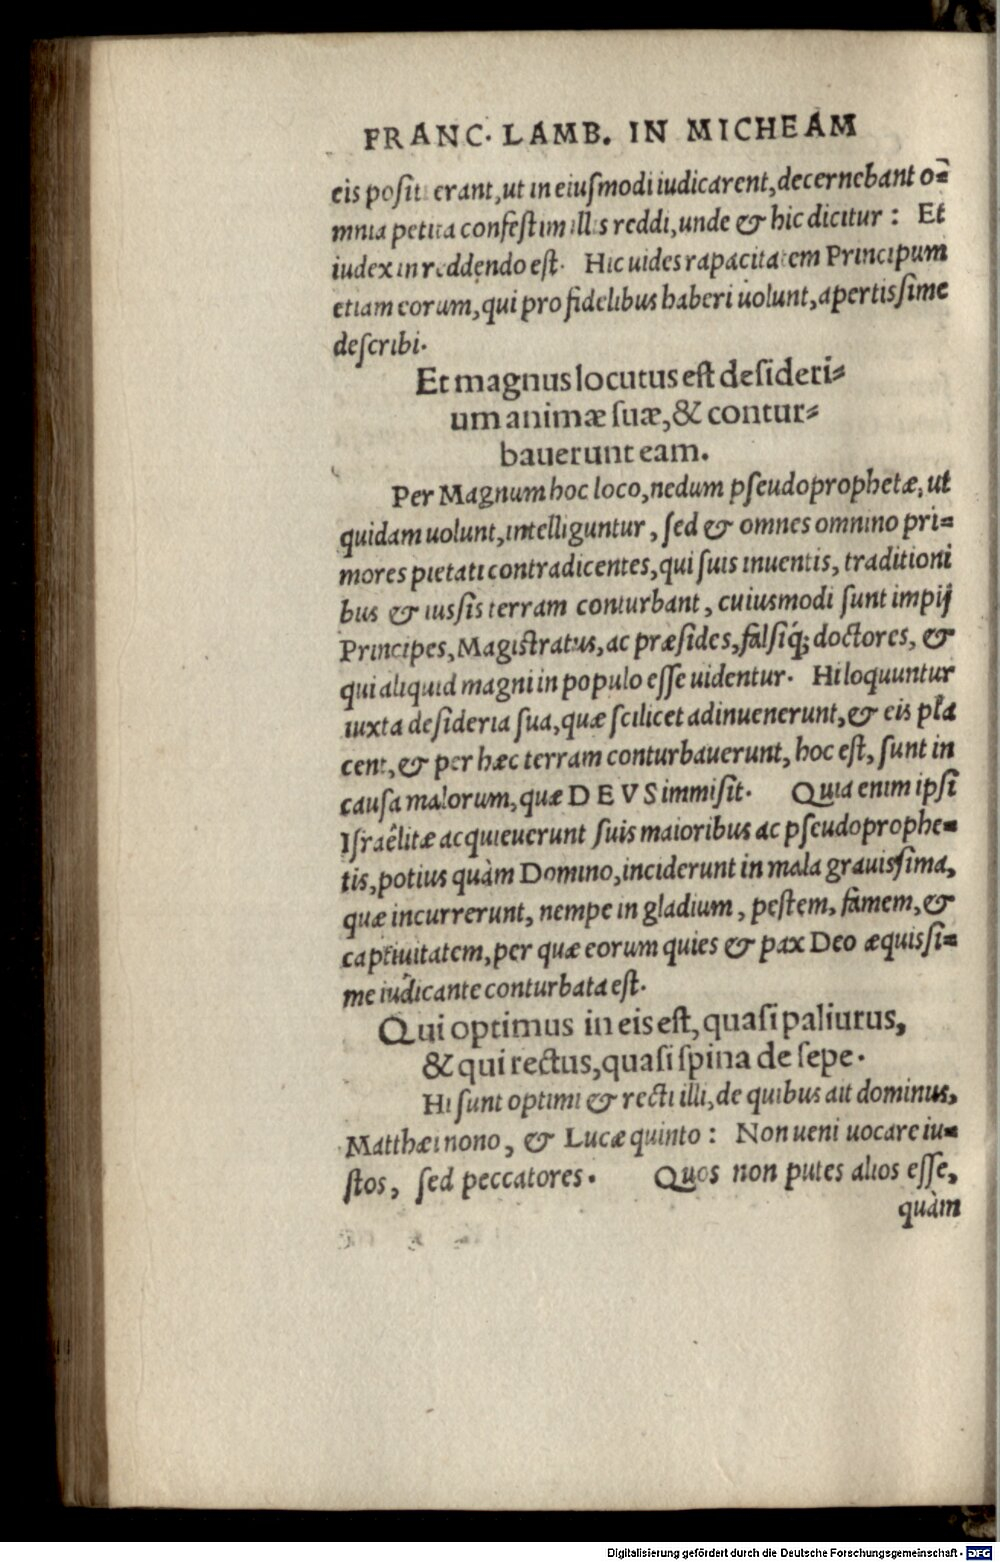 FRANC. LAMB. IN MICHEAM
eis posit erant, ut in eiuſmodi iudicarent, decernebant o⸗
mnia petita confeſtim illis reddi, unde & hic dicitur : Et
iudex in reddendo eſt. Hic uides rapacitatem Principum
etiam eorum, qui pro fidelibus haberi uolunt, apertisſime
deſcribi.
Et magnus locutus eſt deſideri⸗
um animæ ſuæ, & contur⸗
bauerunt eam.
Per Magnum hoc loco, nedum pſeudoprophetæ, ut
quidam uolunt, intelliguntur, ſed & omnes omnino pri⸗
mores pietati contradicentes, qui ſuis inuentis, traditioni
bus & iusſis terram conturbant, cuiusmodi ſunt impij
Principes, Magiſtratus, ac præſides, falſiq́; doctores, &
qui aliquid magni in populo eſſe uidentur. Hi loquuntur
iuxta deſideria ſua, quæ ſcilicet adinuenerunt, & eis pla
cent, & per hæc terram conturbauerunt, hoc eſt, ſunt in
cauſa malorum, quæ DEVS immiſit. Quia enim ipſi
Iſraêlitæ acquieuerunt ſuis maioribus ac pſeudoprophe⸗
tis, potius quàm Domino, inciderunt in mala grauisſima,
quæ incurrerunt, nempe in gladium, peſtem, famem, &
captiuitatem, per quæ eorum quies & pax Deo æquisſi⸗
me iudicante conturbata eſt.
Qui optimus in eis eſt, quaſi paliurus,
& qui rectus, quaſi ſpina de ſepe.
Hi ſunt optimi & recti illi, de quibus ait dominus,
Matthæi nono, & Lucæ quinto : Non ueni uocare iu⸗
ſtos, ſed peccatores. Quos non putes alios eſſe,
quàm
Digitalisierung gefördert durch die Deutsche Forschungsgemeinschaft - DFG